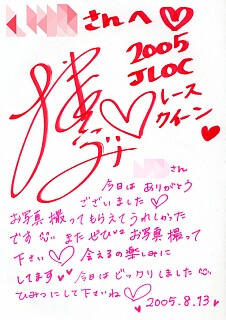 さんへ♡
2005
JLOC
レース
クイーン
さん
今日は ありがとう
ございました♡
お写真 撮ってもらえてうれしかった
です また ぜひ お写真 撮って
下さい♡ 会えるの楽しみに
してます♥♥ 今日はビックリしました
ひみつにして下さいね♡
2005.8.13♥